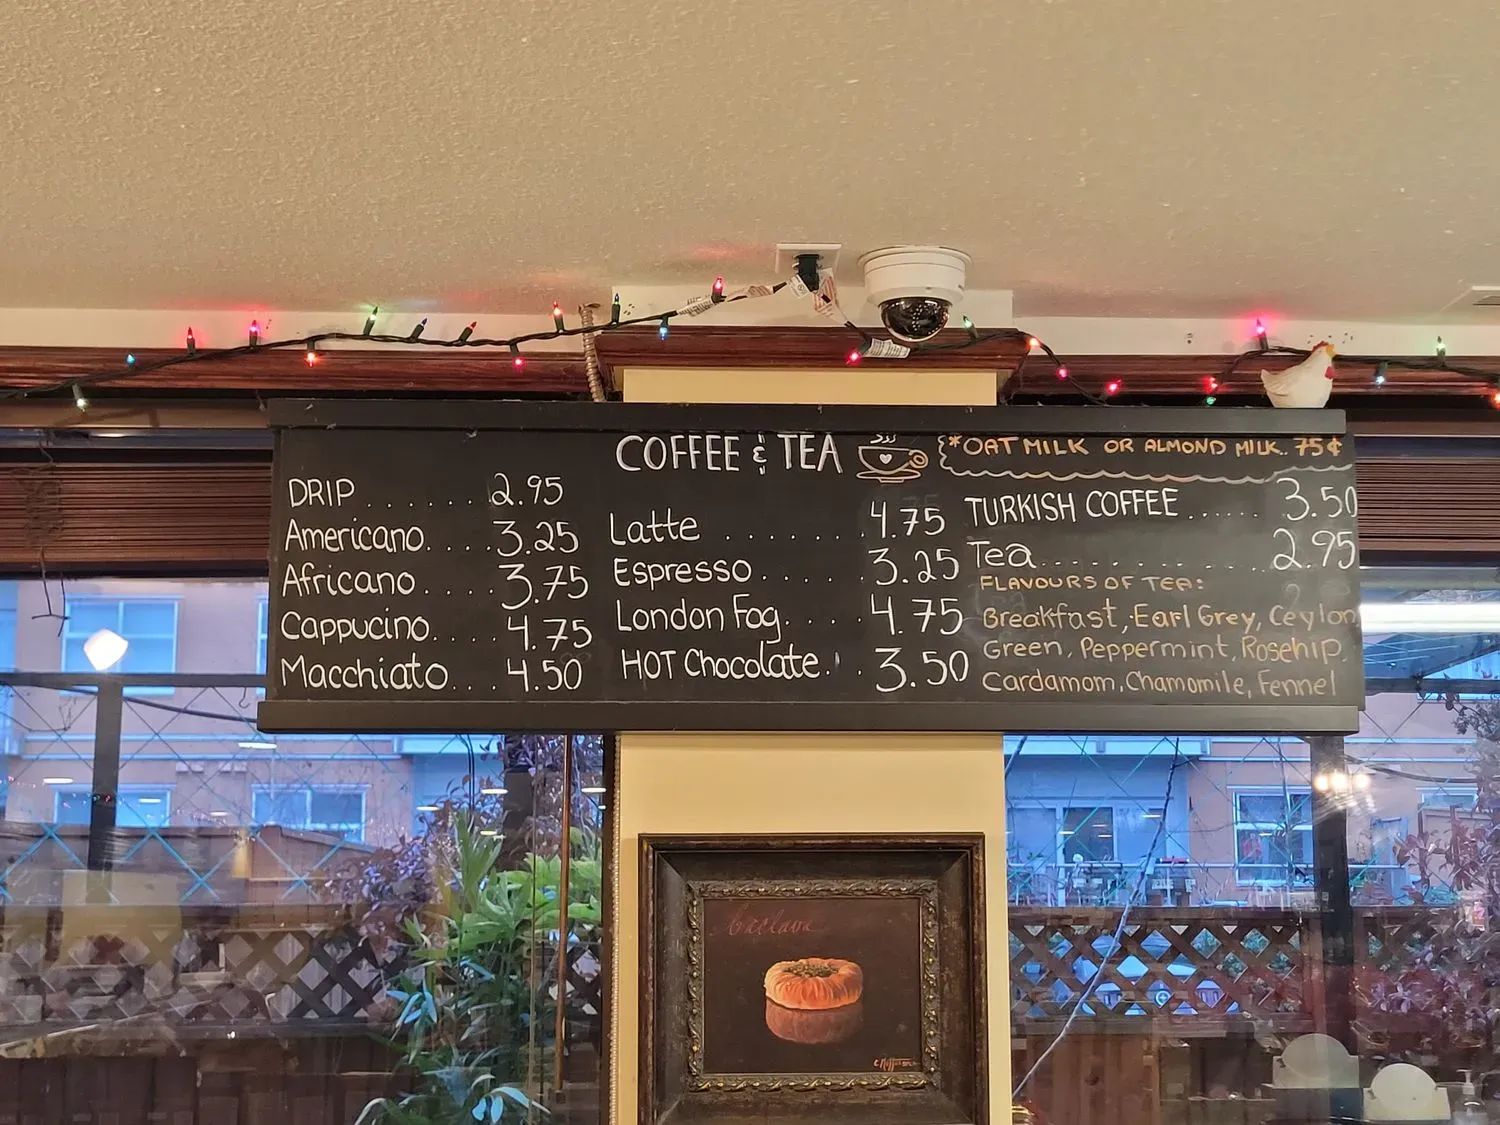 COFFEE & TEA
*OAT MILK OR ALMOND MILK.. 75¢
DRIP....... 2.95
Americano.....3.25
Africano.....3.75
Cappucino....4.75
Macchiato...4.50
Latte ........4.75
Espresso.....3.25
London Fog.....4.75
HOT Chocolate... 3.50
TURKISH COFFEE...... 3.50
Tea............2.95
FLAVOURS OF TEA:
Breakfast, Earl Grey, Ceylon
Green, Peppermint, Rosehip
Cardamom, Chamomile, Fennel
Baclava